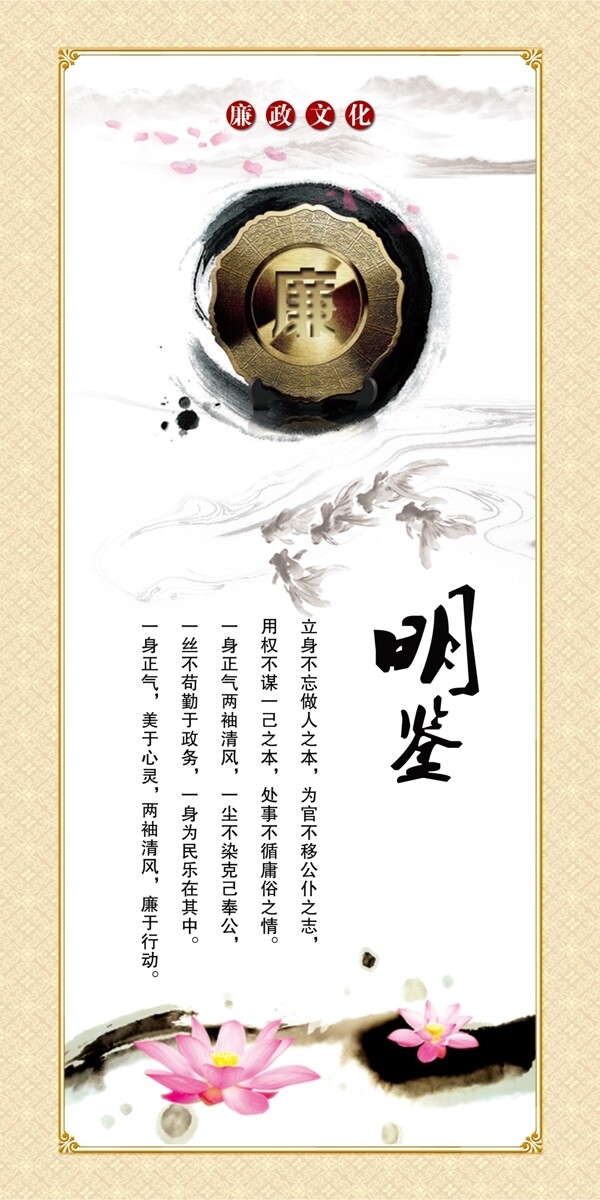 廉政文化
廉
明鉴
立身不忘做人之本，为官不移公仆之志，
用权不谋一己之本，处事不循庸俗之情。
一身正气两袖清风，一尘不染克己奉公，
一丝不苟勤于政务，一身为民乐在其中。
一身正气，美于心灵，两袖清风，廉于行动。